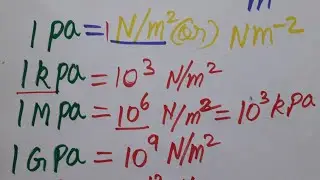 1 pa = 1 N/m² (or) Nm⁻²
1 kpa = 10³ N/m²
1 Mpa = 10⁶ N/m² = 10³ kpa
1 GPa = 10⁹ N/m²